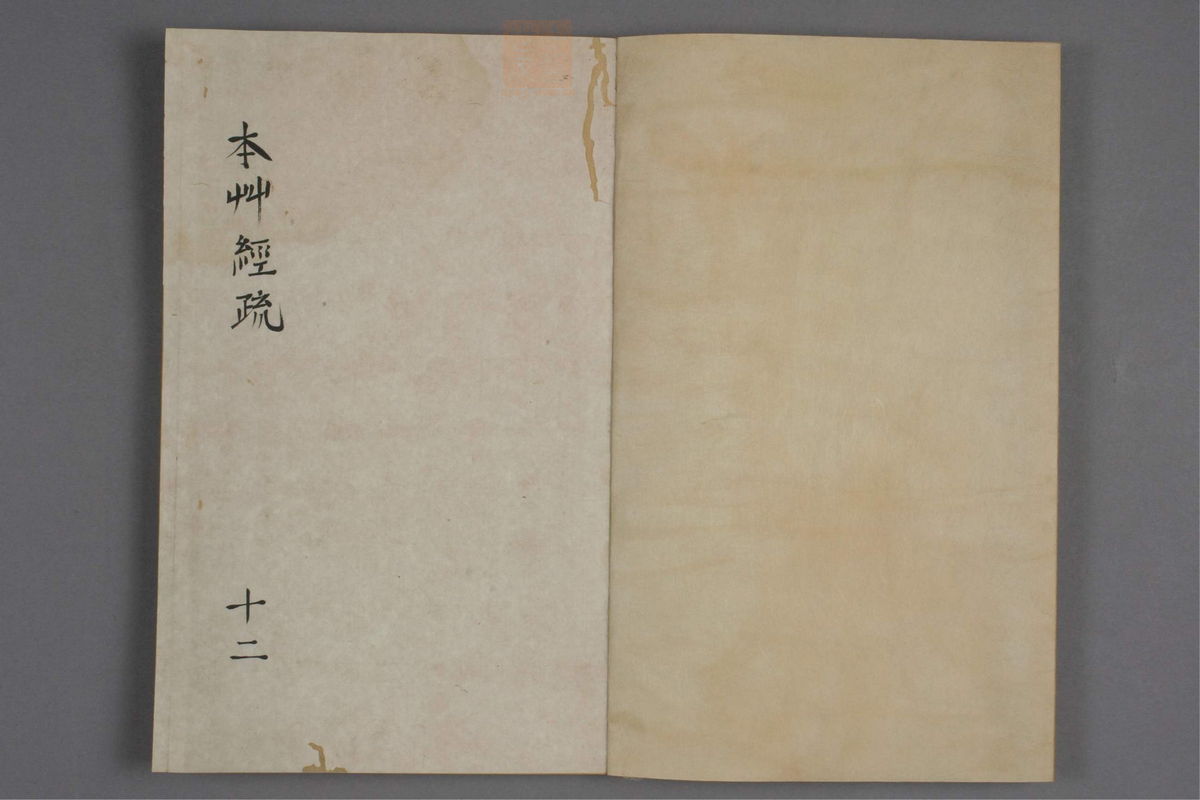 本艸經疏
十二